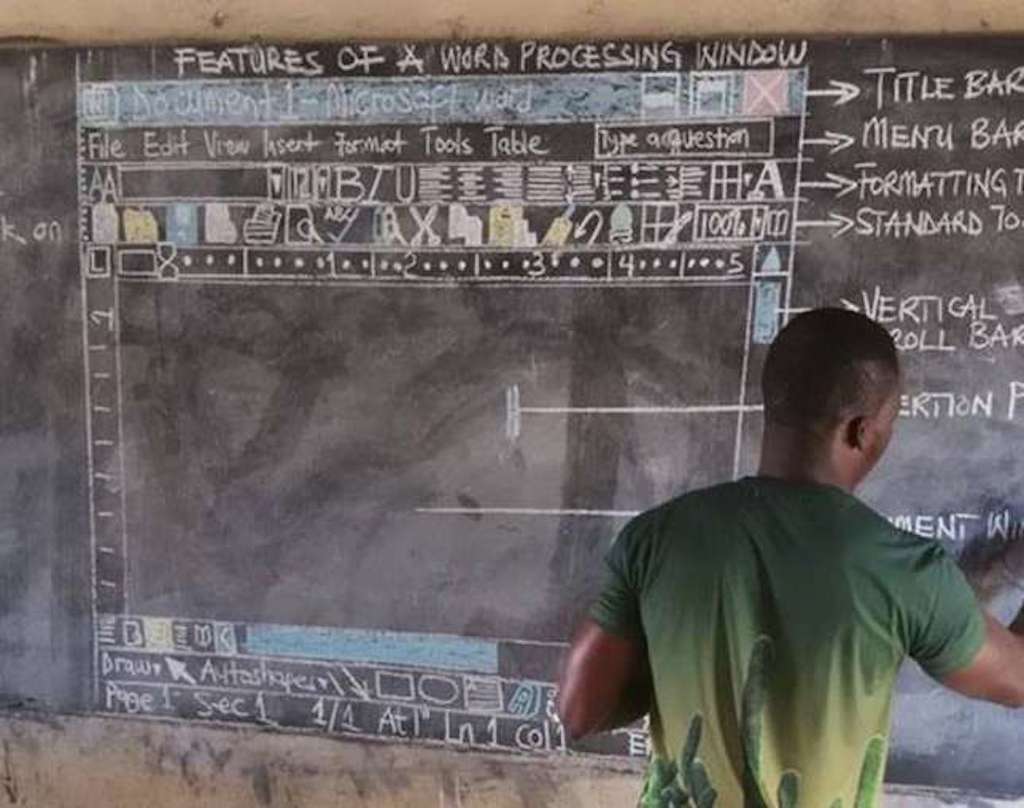 FEATURES OF A WORD PROCESSING WINDOW
Document 1 - Microsoft Word
TITLE BAR
File Edit View Insert Format Tools Table Type a question
MENU BAR
AA B I U A
FORMATTING T
k on
ABC 100%
STANDARD TO
L 1 2 3 4 5
VERTICAL
ROLL BAR
ERTION P
MENT WIN
Draw Autoshapes
Page 1 Sec 1 1/1 At 1" Ln 1 Col 1